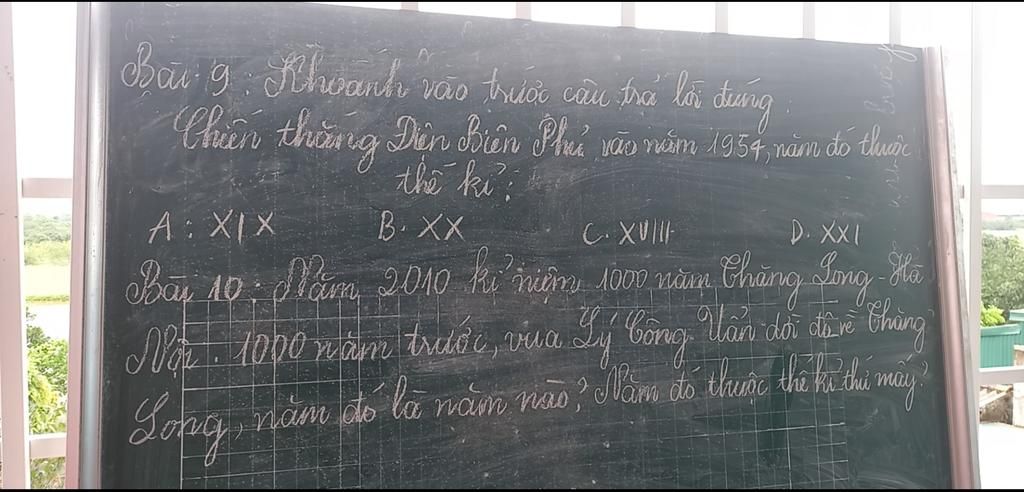 Bài 9: Khoanh vào trước câu trả lời đúng:
Chiến thắng Điện Biên Phủ vào năm 1954, năm đó thuộc
thế kỉ:
A: XIX B. XX C. XVIII D. XXI
Bài 10: Năm 2010 kỉ niệm 1000 năm Thăng Long - Hà
Nội. 1000 năm trước, vua Lý Công Uẩn dời đô về Thăng
Long, năm đó là năm nào? Năm đó thuộc thế kỉ thứ mấy?